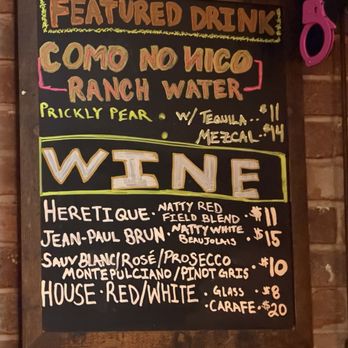 FEATURED DRINK
COMO NO NICO
RANCH WATER
PRICKLY PEAR • W/ TEQUILA.. $11
MEZCAL $14
WINE
HERETIQUE • NATTY RED FIELD BLEND • $11
JEAN-PAUL BRUN • NATTY WHITE BEAUJOLAIS • $15
SAUV BLANC/ROSÉ/PROSECCO
MONTEPULCIANO/PINOT GRIS • $10
HOUSE • RED/WHITE • GLASS • $8
CARAFE • $20